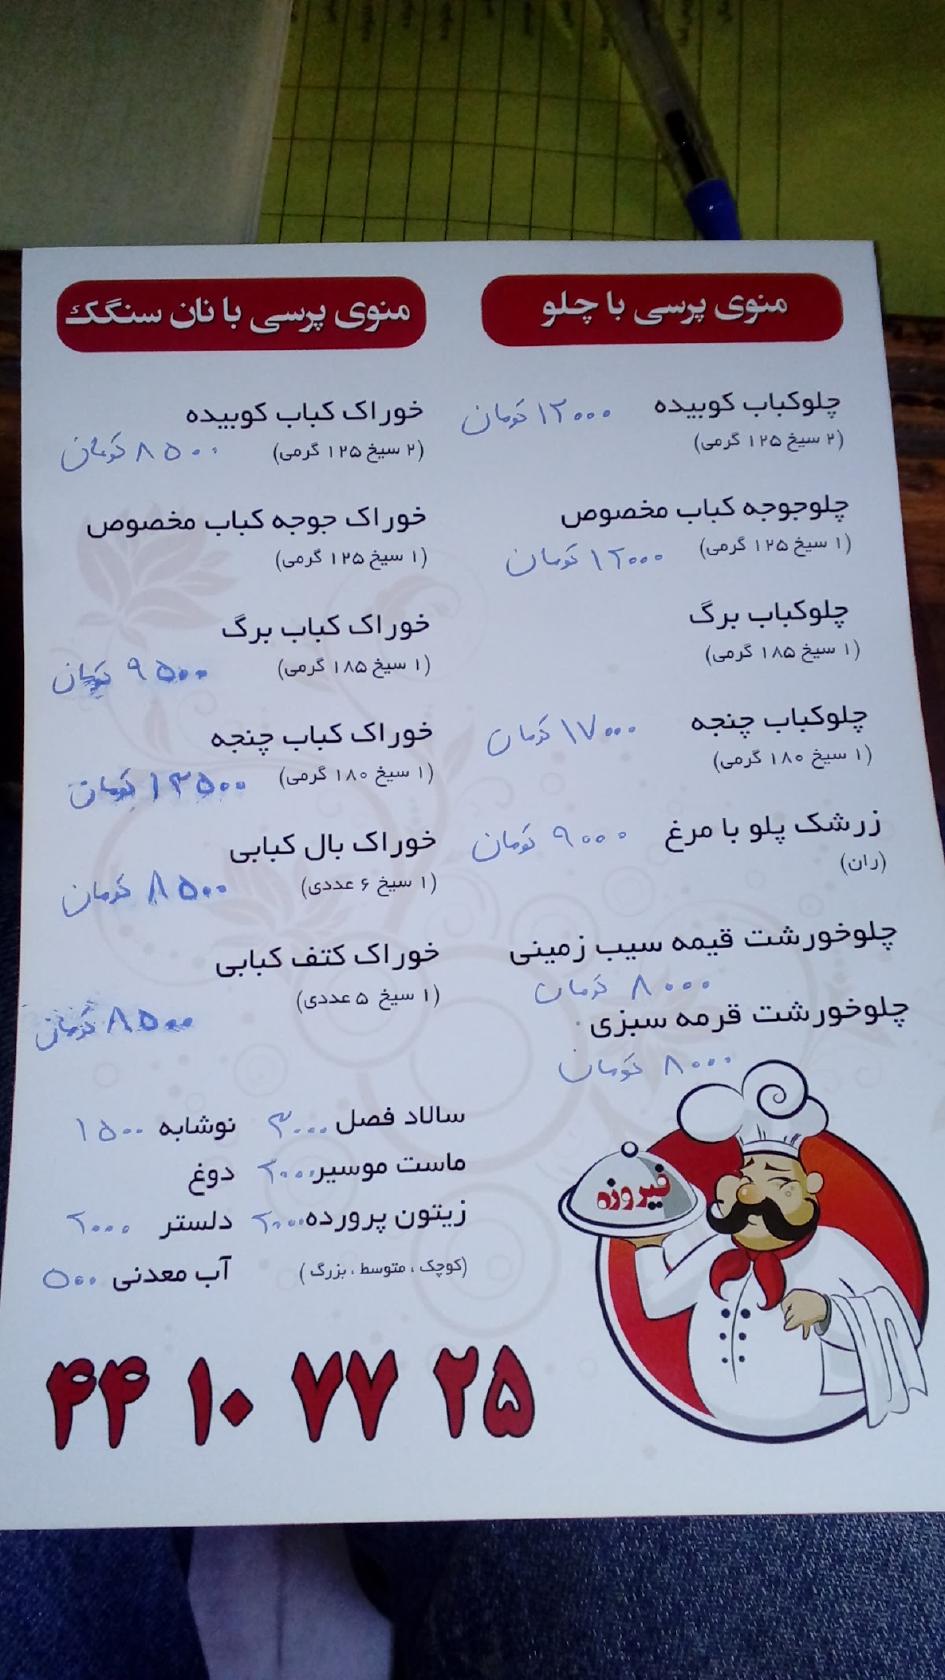 منوی پرسی با چلو
چلوکباب کوبیده ۱۲۰۰۰ تومان
(۲ سیخ ۱۲۵ گرمی)
چلوجوجه کباب مخصوص
(۱ سیخ ۱۲۵ گرمی) ۱۲۰۰۰ تومان
چلوکباب برگ
(۱ سیخ ۱۸۵ گرمی)
چلوکباب چنجه ۱۷۰۰۰ تومان
(۱ سیخ ۱۸۰ گرمی)
زرشک پلو با مرغ ۹۰۰۰ تومان
(ران)
چلوخورشت قیمه سیب زمینی
۸۰۰۰ تومان
چلوخورشت قرمه سبزی
۸۰۰۰ تومان
منوی پرسی با نان سنگک
خوراک کباب کوبیده
(۲ سیخ ۱۲۵ گرمی) ۸۵۰۰ تومان
خوراک جوجه کباب مخصوص
(۱ سیخ ۱۲۵ گرمی)
خوراک کباب برگ
(۱ سیخ ۱۸۵ گرمی) ۹۵۰۰ تومان
خوراک کباب چنجه
(۱ سیخ ۱۸۰ گرمی) ۱۳۵۰۰ تومان
خوراک بال کبابی
(۱ سیخ ۶ عددی) ۸۵۰۰ تومان
خوراک کتف کبابی
(۱ سیخ ۵ عددی)
۸۵۰۰ تومان
سالاد فصل ۳۰۰۰ نوشابه ۱۵۰۰
ماست موسیر ۲۰۰۰ دوغ
زیتون پرورده ۲۰۰۰ دلستر ۲۰۰۰
(کوچک ، متوسط ، بزرگ) آب معدنی ۵۰۰
فیروزه
۴۴ ۱۰ ۷۷ ۲۵